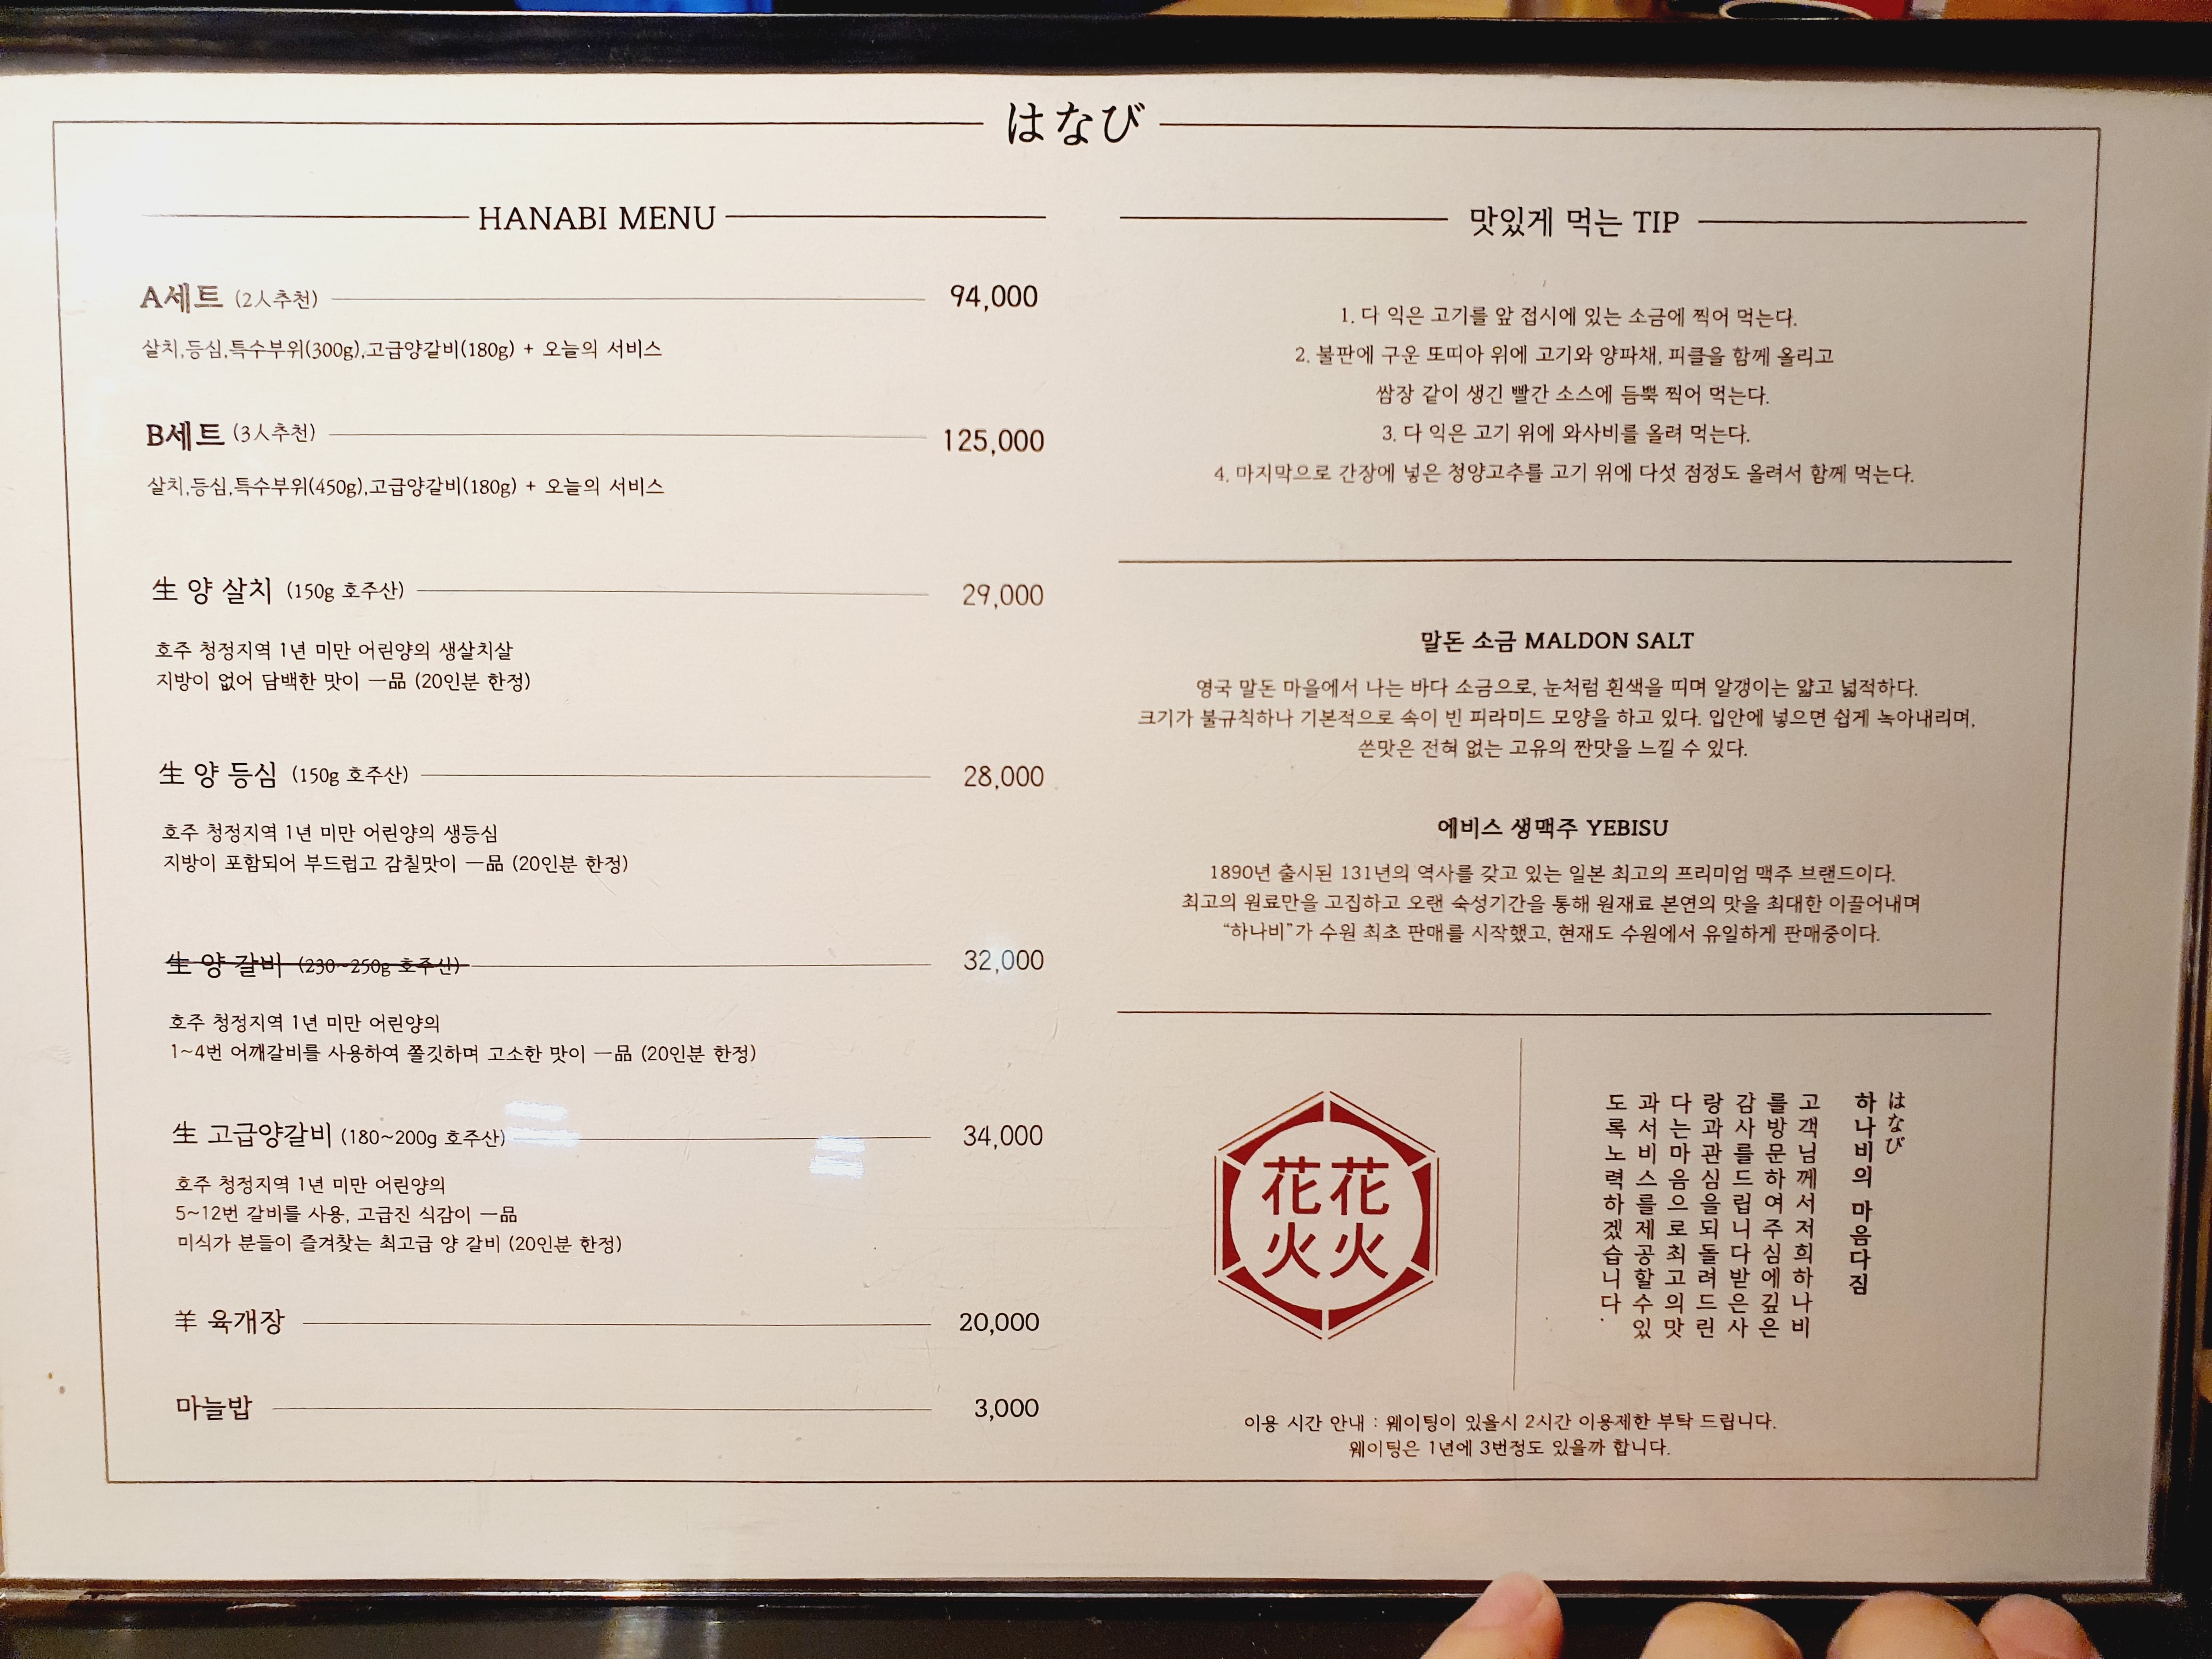 はなび
HANABI MENU
A세트 (2人추천) 94,000
살치,등심,특수부위(300g),고급양갈비(180g) + 오늘의 서비스
B세트 (3人추천) 125,000
살치,등심,특수부위(450g),고급양갈비(180g) + 오늘의 서비스
生 양 살치 (150g 호주산) 29,000
호주 청정지역 1년 미만 어린양의 생살치살
지방이 없어 담백한 맛이 一品 (20인분 한정)
生 양 등심 (150g 호주산) 28,000
호주 청정지역 1년 미만 어린양의 생등심
지방이 포함되어 부드럽고 감칠맛이 一品 (20인분 한정)
生 양 갈비 (230~250g 호주산) 32,000
호주 청정지역 1년 미만 어린양의
1~4번 어깨갈비를 사용하여 쫄깃하며 고소한 맛이 一品 (20인분 한정)
生 고급양갈비 (180~200g 호주산) 34,000
호주 청정지역 1년 미만 어린양의
5~12번 갈비를 사용, 고급진 식감이 一品
미식가 분들이 즐겨찾는 최고급 양 갈비 (20인분 한정)
羊 육개장 20,000
마늘밥 3,000
맛있게 먹는 TIP
1. 다 익은 고기를 앞 접시에 있는 소금에 찍어 먹는다.
2. 불판에 구운 또띠아 위에 고기와 양파채, 피클을 함께 올리고
쌈장 같이 생긴 빨간 소스에 듬뿍 찍어 먹는다.
3. 다 익은 고기 위에 와사비를 올려 먹는다.
4. 마지막으로 간장에 넣은 청양고추를 고기 위에 다섯 점정도 올려서 함께 먹는다.
말돈 소금 MALDON SALT
영국 말돈 마을에서 나는 바다 소금으로, 눈처럼 흰색을 띠며 알갱이는 얇고 넓적하다.
크기가 불규칙하나 기본적으로 속이 빈 피라미드 모양을 하고 있다. 입안에 넣으면 쉽게 녹아내리며,
쓴맛은 전혀 없는 고유의 짠맛을 느낄 수 있다.
에비스 생맥주 YEBISU
1890년 출시된 131년의 역사를 갖고 있는 일본 최고의 프리미엄 맥주 브랜드이다.
최고의 원료만을 고집하고 오랜 숙성기간을 통해 원재료 본연의 맛을 최대한 이끌어내며
"하나비"가 수원 최초 판매를 시작했고, 현재도 수원에서 유일하게 판매중이다.
花花
火火
はなび
하나비의 마음다짐
고객님께서저희하나비
를방문하여주심에깊은
감사를드립니다받은사
랑과관심을되돌려드린
다는마음으로최고의맛
과서비스를제공할수있
도록노력하겠습니다.
이용 시간 안내 : 웨이팅이 있을시 2시간 이용제한 부탁 드립니다.
웨이팅은 1년에 3번정도 있을까 합니다.